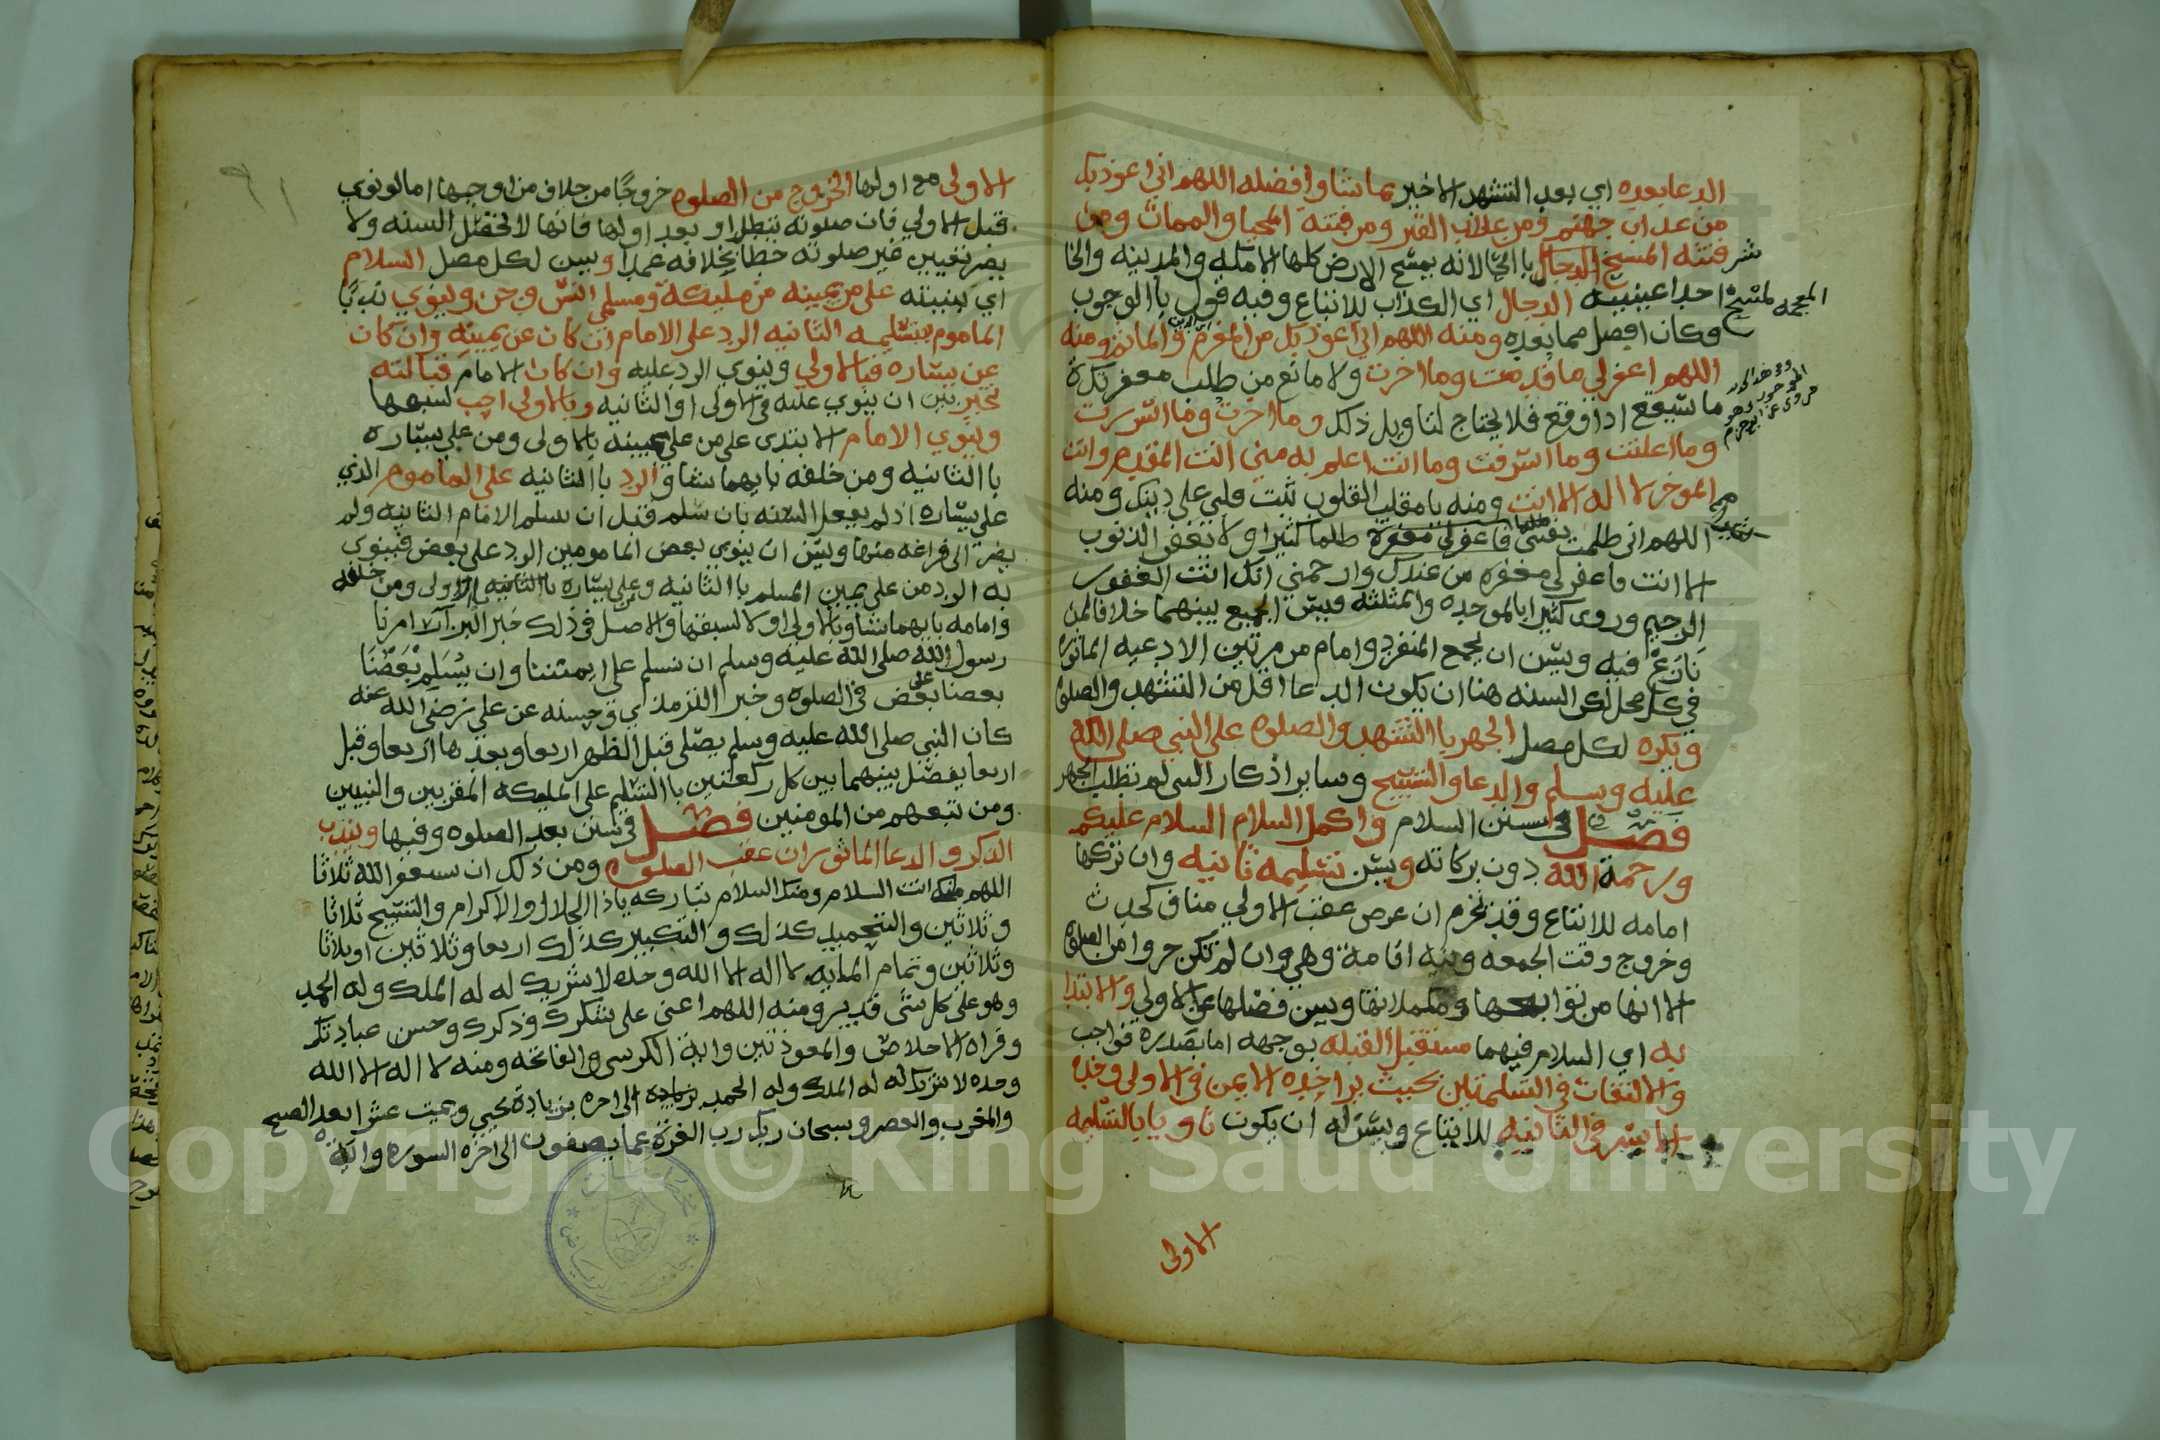 الدعا بعده اي بعد التشهد الاخير بما شا وافضله اللهم اني اعوذ بك
من عذاب جهنم ومن عذاب القبر ومن فتنة المحيا والممات ومن
شر فتنة المسيح الدجال بالحا لانه يمسح الارض كلها الا مكه والمدينه والخا
المعجمه لمسخ احد اعينيه الدجال اي الكذاب للاتباع وفيه قول باالوجوب
وكان افضل مما بعده ومنه اللهم اني اعوذ بك من المغرم والماثم ومنه
اللهم اغفر لي ما قدمت وما اخرت ولا مانع من طلب مغفرة
ما سيقع اذا وقع فلا يحتاج لتاويل ذلك وما اخرت وما اسررت
وما اعلنت وما اسرفت وما انت اعلم به مني انت المقدم وانت
الموخر لا اله الا انت ومنه يا مقلب القلوب ثبت قلبي على دينك ومنه
اللهم اني ظلمت نفسي ظلما كثيرا ولا يغفر الذنوب
الا انت فاغفر لي مغفرة من عندك وارحمني انك انت الغفور
الرحيم وروى كثيرا بالموحده والمثلثه فيسن الجمع بينهما خلافا لمن
نازع فيه ويسن ان يجمع المنفرد وامام من مر بين الادعيه الماثوره
في كل محل لكن السنه هنا ان يكون الدعا اقل من التشهد والصلوة
ويكره لكل مصل الجهر باالتشهد والصلوه على النبي صلى الله
عليه وسلم والدعا والتسبيح وساير اذكار التي لم يطلب الجهر
فصل في سنن السلام واكمل السلام السلام عليكم
ورحمة الله دون بركاته ويسن تسليمه ثانيه وان تركها
امامه للاتباع وقد تحرم ان عرض عقب الاولى مناف كحدث
وخروج وقت الجمعه ونية اقامة وهي وان لم تكن جزوا من الصلوه
الا انها من توابعها ومكملاتها ويسن فصلها عن الاولى والابتدا
به اي السلام فيهما مستقبل القبله بوجهه اما بصدره فواجب
والالتفات في التسليمتين بحيث يرا خده الايمن في الاولى وخده
الايسر في الثانيه للاتباع ويسن له ان يكون ناويا بالتسليمه
الاولى
الاولى مع اولها الخروج من الصلوه خروجًا من خلاف من اوجبها اما لو نوى
قبل الاولى فان صلوته تبطل او بعد اولها فانها لا تحصل السنه ولا
يضر تعيين غير صلوته خطا بخلافه عمدا ويسن لكل مصل السلام
اي بنيته على من يمينه من مليكة ومسلمي انس وجن وينوي ندبًا
الماموم بتسليمه الثانيه الرد على الامام ان كان عن يمينه وان كان
عن يساره فبالاولى وينوي الرد عليه وان كان الامام قبالته
تخير بين ان ينوي عليه في الاولى او الثانيه وبالاولى احب لسبقها
وينوي الامام الابتدى على من على يمينه بالاولى ومن على يساره
باالثانيه ومن خلفه بايهما شا والرد باالثانيه على الماموم الذي
على يساره اذ لم يفعل السنه بان سلم قبل ان يسلم الامام الثانيه ولم
يصر الى فراغه منها ويسن ان ينوي بعض المامومين الرد على بعض فينوي
به الرد من على يمين المسلم باالثانيه وعلى يساره بالاولى ومن خلفه
وامامه بايهما شا وبالاولى اولا لسبقها والاصل في ذلك خبر البزار امرنا
رسول الله صلى الله عليه وسلم ان نسلم على ايمتنا وان يسلم بعضنا
بعضنا على بعض في الصلوه وخبر الترمذي وحسنه عن علي رضي الله عنه
كان النبي صلى الله عليه وسلم يصلي قبل الظهر اربعا وبعدها اربعا وقبل
اربعا يفصل بينهما بين كل ركعتين باالتسليم على المليكه المقربين والنبيين
ومن تبعهم من المومنين فصل في سنن بعد الصلوه وفيها ويندب
الذكر والدعا الماثوران عقب الصلوه ومن ذلك ان يستغفر الله ثلاثا
اللهم انت السلام ومنك السلام تباركت ياذا الجلال والاكرام والتسبيح ثلاثا
وثلاثين والتحميد كذلك والتكبير كذلك اربعا وثلاثين او ثلاثا
وثلاثين وتمام المايه لا اله الا الله وحده لا شريك له له الملك وله الحمد
وهو على كل شى قدير ومنه اللهم اعني على شكرك وذكرك وحسن عبادتك
وقراة الاخلاص والمعوذتين واية الكرسي والفاتحه ومنه لا اله الا الله
وحده لا شريك له له الملك وله الحمد الى اخره بزيادة يحيي ويميت عشرا بعد الصبح
والمغرب والعصر وسبحان ربك رب العزة عما يصفون الى اخره السوره واية